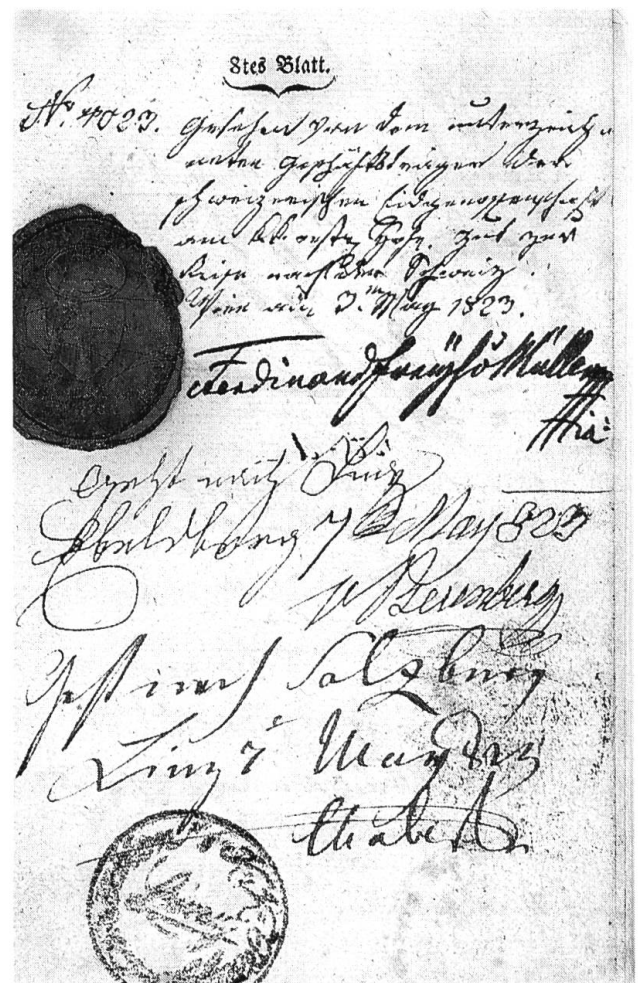 8tes Blatt.
Nº. 4023. Gesehen von dem unterzeich-
neten Geschäftsträger der
schweizerischen Eidgenossenschaft
am kk. oestr. Hofe. Gut zur
Reise nach der Schweiz.
Wien am 3. May 1823.
Ferdinand Müller
Geht nach Linz
Ebelsberg 7 May 823
Geht nach Salzburg
Linz 7 May 823